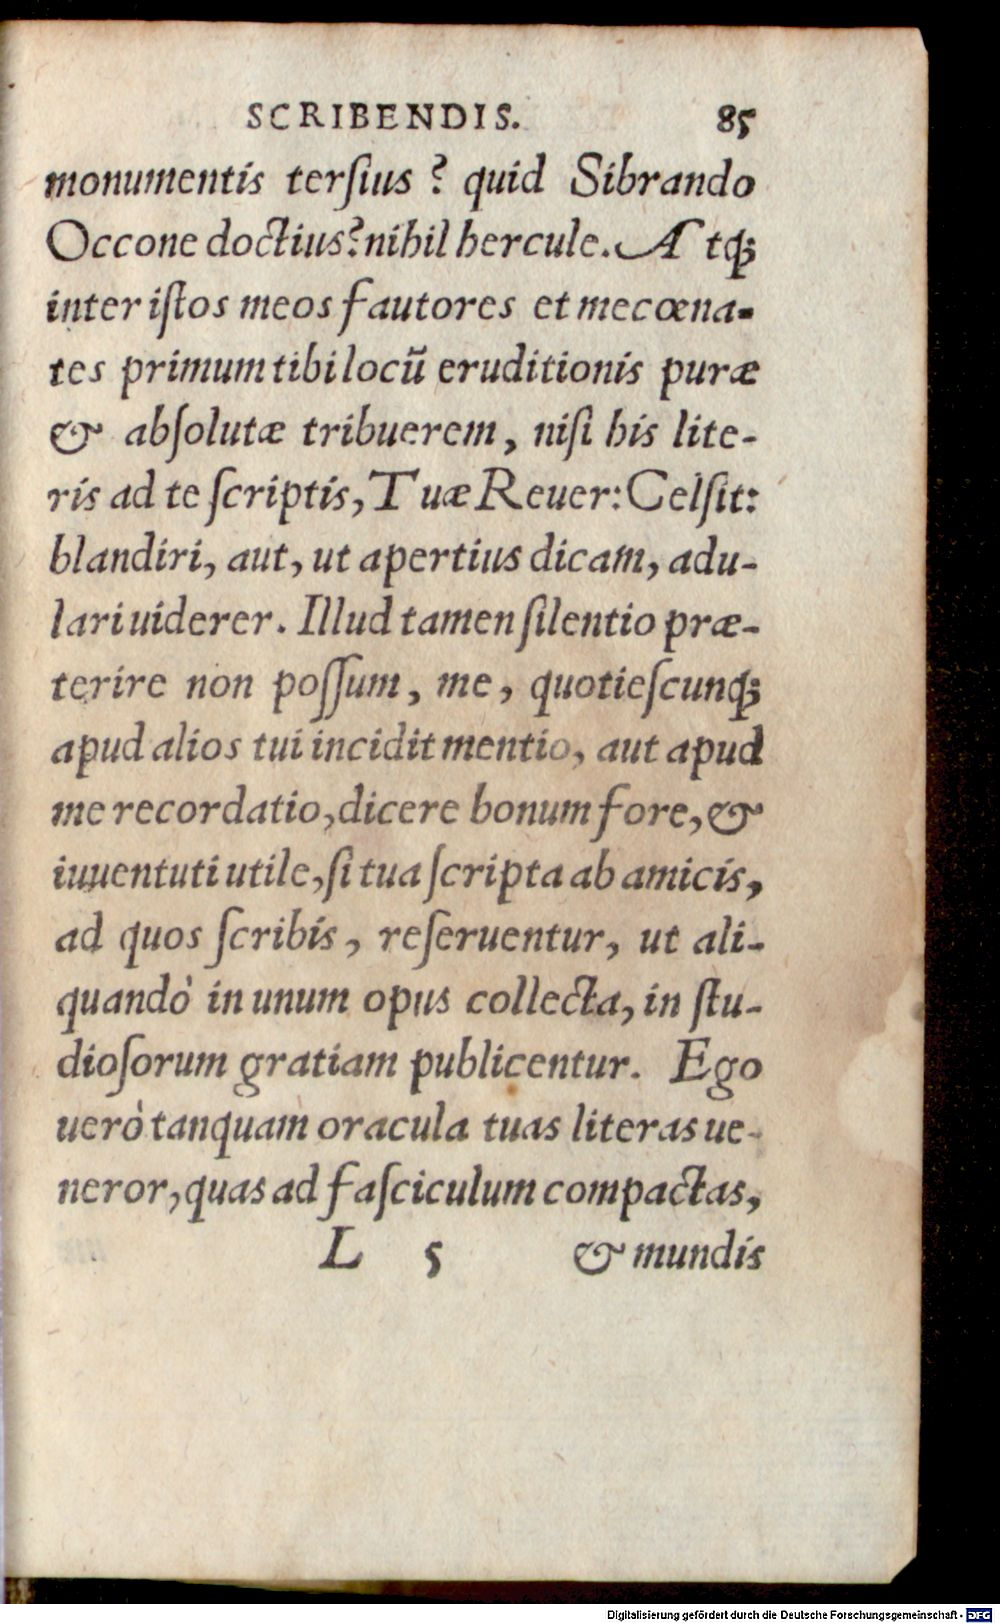 SCRIBENDIS. 85
monumentis terſius? quid Sibrando
Occone doctius? nihil hercule. Atq́;
inter iſtos meos fautores et mecœna-
tes primum tibi locũ eruditionis puræ
& abſolutæ tribuerem, niſi his lite-
ris ad te ſcriptis, Tuæ Reuer: Celſit:
blandiri, aut, ut apertius dicam, adu-
lari uiderer. Illud tamen ſilentio præ-
terire non poſſum, me, quotieſcunq́;
apud alios tui incidit mentio, aut apud
me recordatio, dicere bonum fore, &
iuuentuti utile, ſi tua ſcripta ab amicis,
ad quos ſcribis, reſeruentur, ut ali-
quandò in unum opus collecta, in ſtu-
dioſorum gratiam publicentur. Ego
uerò tanquam oracula tuas literas ue-
neror, quas ad faſciculum compactas,
L 5 & mundis
Digitalisierung gefördert durch die Deutsche Forschungsgemeinschaft - DFG